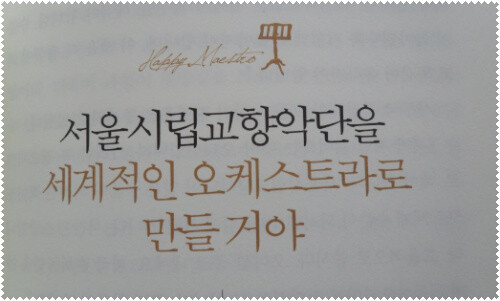 Happy Maestro
서울시립교향악단을
세계적인 오케스트라로
만들 거야